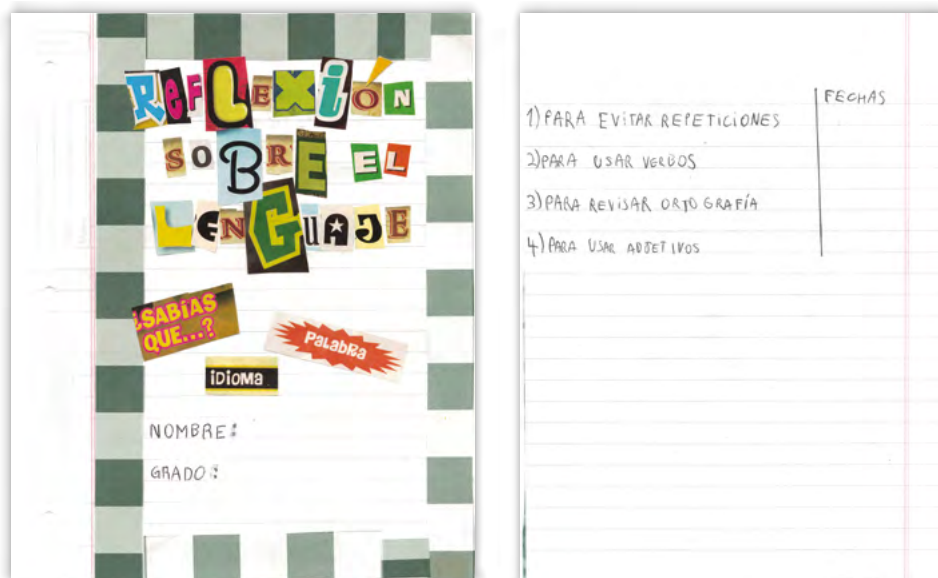 REFLEXIÓN
SOBRE EL
LENGUAJE
¿SABÍAS
QUE...?
PALABRA
IDIOMA
NOMBRE:
GRADO:
FECHAS
1) PARA EVITAR REPETICIONES
2) PARA USAR VERBOS
3) PARA REVISAR ORTOGRAFÍA
4) PARA USAR ADJETIVOS